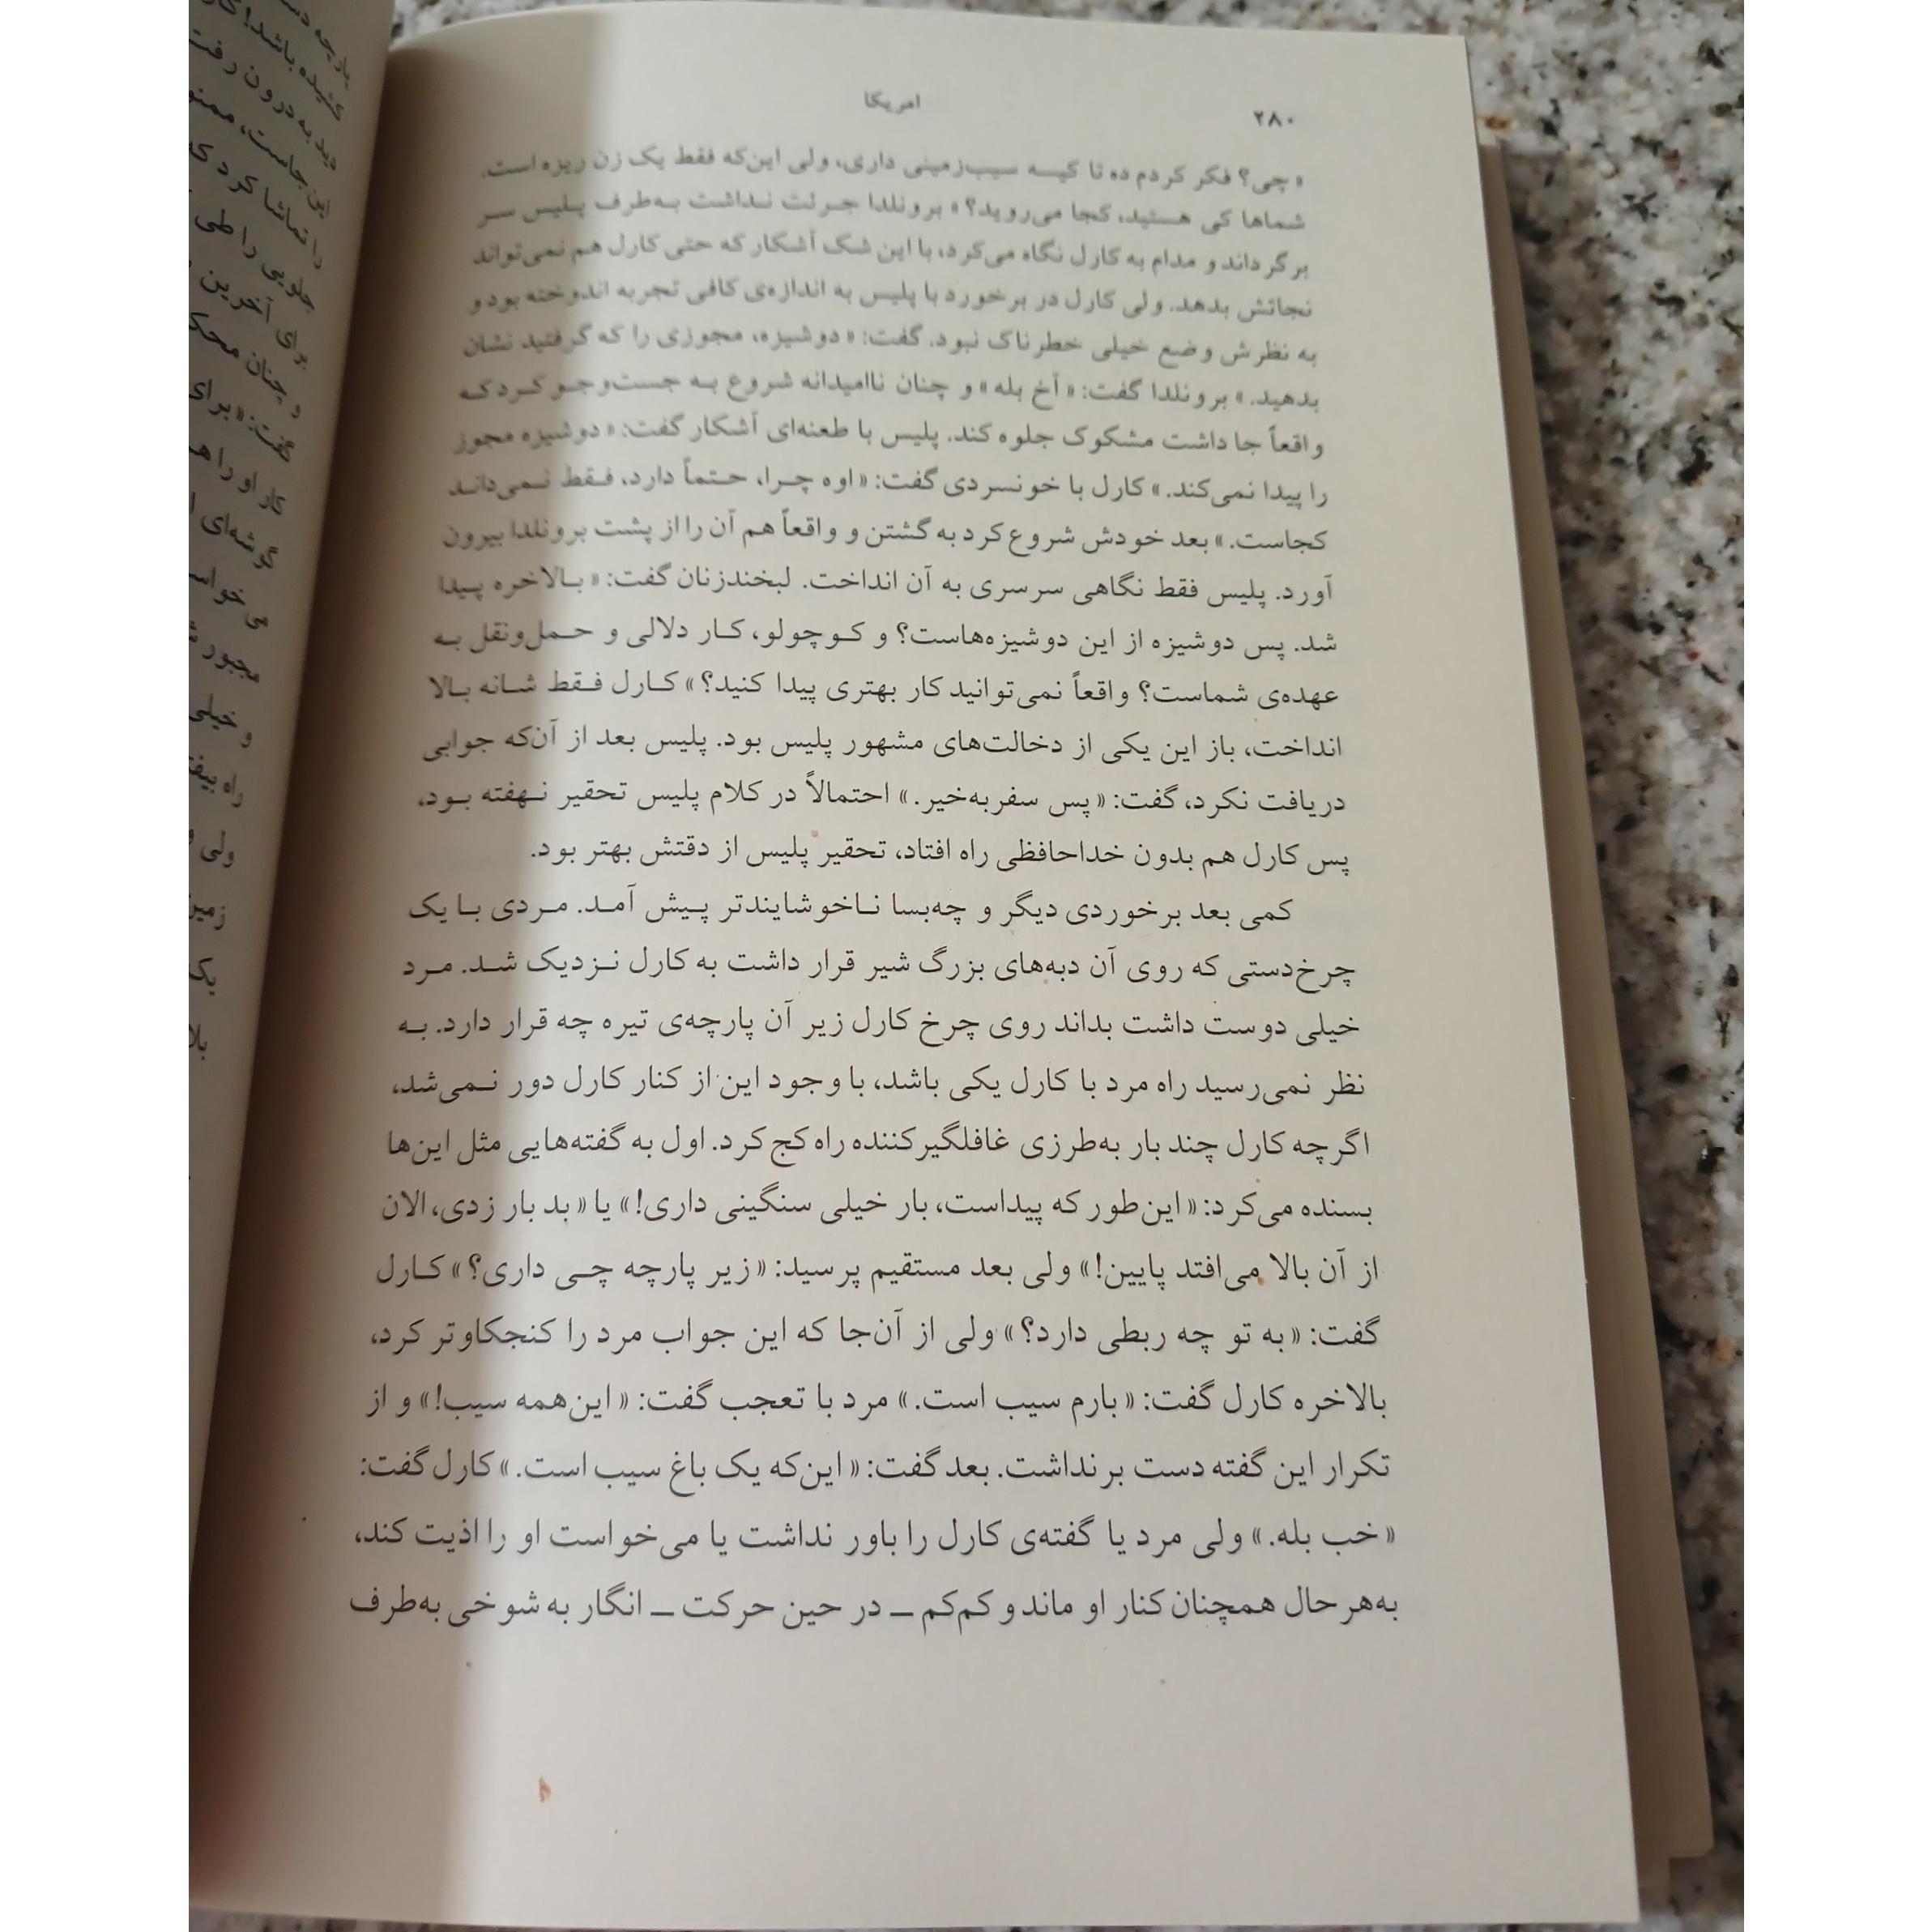 ۲۸۰
امریکا
« چی؟ فکر کردم ده تا کیسه سیب‌زمینی داری، ولی این‌که فقط یک زن ریزه است.
شماها کی هستید، کجا می‌روید؟ » برونلدا جرئت نداشت به‌طرف پلیس سر
برگرداند و مدام به کارل نگاه می‌کرد، با این شک آشکار که حتی کارل هم نمی‌تواند
نجاتش بدهد. ولی کارل در برخورد با پلیس به اندازه‌ی کافی تجربه اندوخته بود و
به نظرش وضع خیلی خطرناک نبود. گفت: « دوشیزه، مجوزی را که گرفتید نشان
بدهید. » برونلدا گفت: « آخ بله » و چنان ناامیدانه شروع به جست‌وجو کرد که
واقعاً جا داشت مشکوک جلوه کند. پلیس با طعنه‌ای آشکار گفت: « دوشیزه مجوز
را پیدا نمی‌کند. » کارل با خونسردی گفت: « اوه چرا، حتماً دارد، فقط نمی‌داند
کجاست. » بعد خودش شروع کرد به گشتن و واقعاً هم آن را از پشت برونلدا بیرون
آورد. پلیس فقط نگاهی سرسری به آن انداخت. لبخندزنان گفت: « بالاخره پیدا
شد. پس دوشیزه از این دوشیزه‌هاست؟ و کوچولو، کار دلالی و حمل‌ونقل به
عهده‌ی شماست؟ واقعاً نمی‌توانید کار بهتری پیدا کنید؟ » کارل فقط شانه بالا
انداخت، باز این یکی از دخالت‌های مشهور پلیس بود. پلیس بعد از آن‌که جوابی
دریافت نکرد، گفت: « پس سفربه‌خیر. » احتمالاً در کلام پلیس تحقیر نهفته بود،
پس کارل هم بدون خداحافظی راه افتاد، تحقیر پلیس از دقتش بهتر بود.
کمی بعد برخوردی دیگر و چه‌بسا ناخوشایندتر پیش آمد. مردی با یک
چرخ‌دستی که روی آن دبه‌های بزرگ شیر قرار داشت به کارل نزدیک شد. مرد
خیلی دوست داشت بداند روی چرخ کارل زیر آن پارچه‌ی تیره چه قرار دارد. به
نظر نمی‌رسید راه مرد با کارل یکی باشد، با وجود این از کنار کارل دور نمی‌شد،
اگرچه کارل چند بار به‌طرزی غافلگیرکننده راه کج کرد. اول به گفته‌هایی مثل این‌ها
بسنده می‌کرد: « این‌طور که پیداست، بار خیلی سنگینی داری! » یا « بد بار زدی، الان
از آن بالا می‌افتد پایین! » ولی بعد مستقیم پرسید: « زیر پارچه چی داری؟ » کارل
گفت: « به تو چه ربطی دارد؟ » ولی از آن‌جا که این جواب مرد را کنجکاوتر کرد،
بالاخره کارل گفت: « بارم سیب است. » مرد با تعجب گفت: « این‌همه سیب! » و از
تکرار این گفته دست برنداشت. بعد گفت: « این‌که یک باغ سیب است. » کارل گفت:
« خب بله. » ولی مرد یا گفته‌ی کارل را باور نداشت یا می‌خواست او را اذیت کند،
به‌هرحال همچنان کنار او ماند و کم‌کم ــ در حین حرکت ــ انگار به شوخی به‌طرف